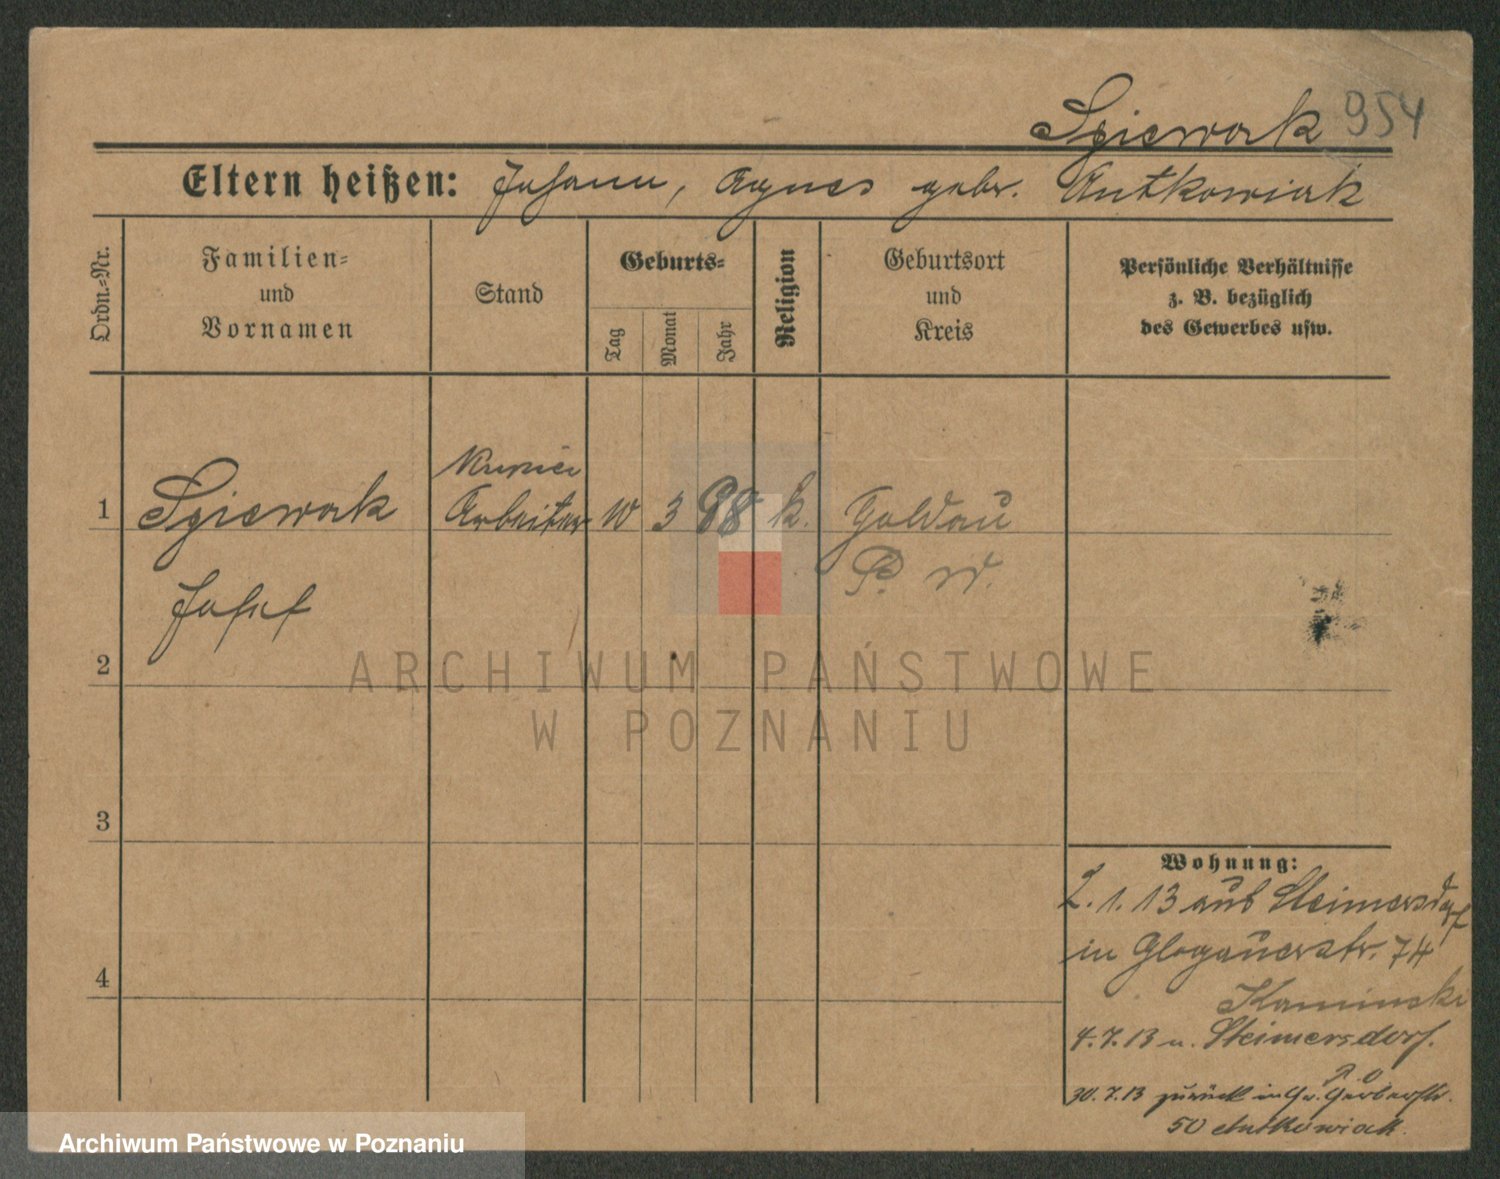 Spiewak 954
Eltern heißen: Johann, Agnes gebr. Antkowiak
Ordn.-Nr.
Familien- und Vornamen
Stand
Geburts-
Tag
Monat
Jahr
Religion
Geburtsort und Kreis
Persönliche Verhältnisse
z. B. bezüglich
des Gewerbes usw.
1 Spiewak Arbeiter 10 3 98 k. Goldau
Josef P. W.
2
3
4
Wohnung:
2. 1. 13 aus Steimersdorf
in Glogauerstr. 74
Kaminski
4. 7. 13 n. Steimersdorf.
30. 7. 13 zurück in Gr. Gerberstr.
50 Antkowiak
ARCHIWUM PAŃSTWOWE
W POZNANIU
Archiwum Państwowe w Poznaniu